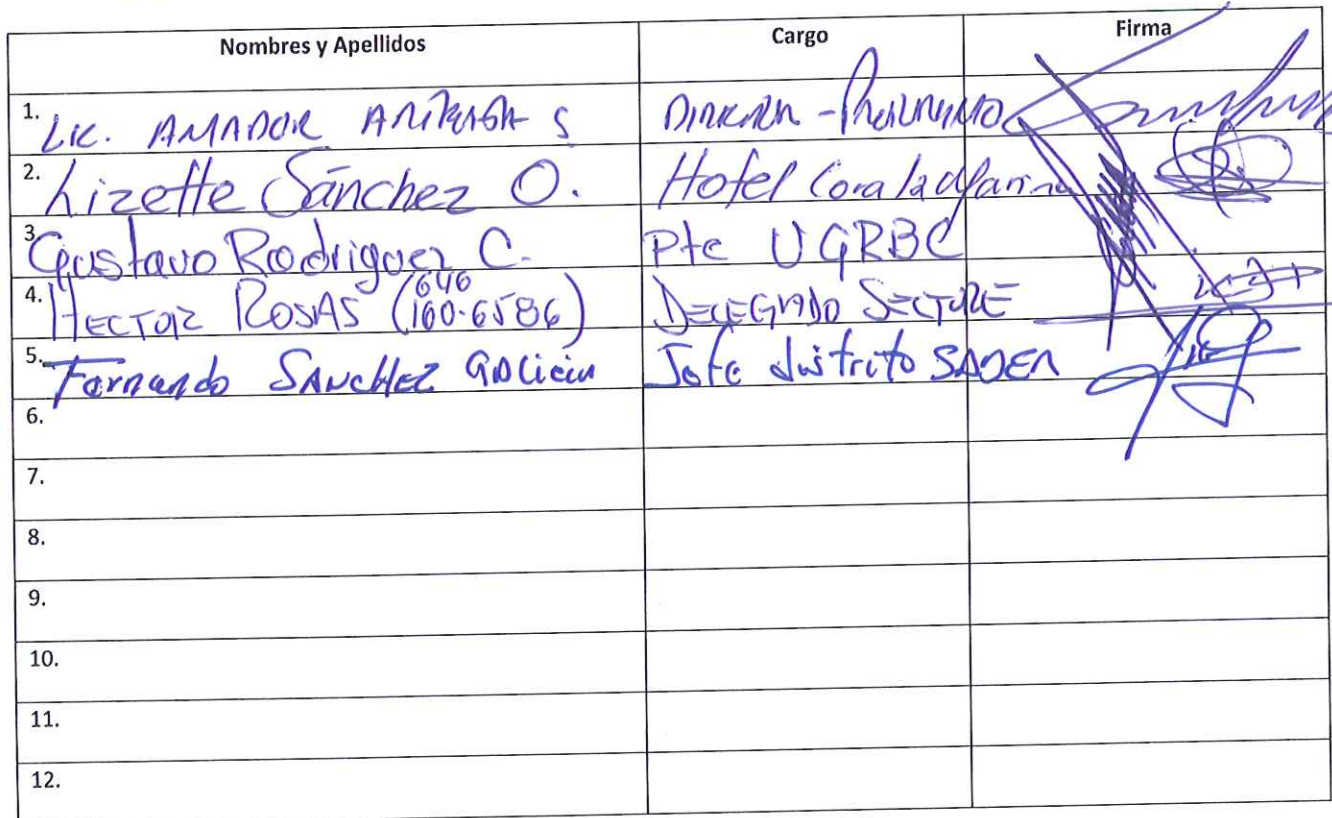 Nombres y Apellidos Cargo Firma
1. Lic. AMADOR ARTEAGA S
2. Lizette Sánchez O. Hotel Coral & Marina
3. Gustavo Rodriguez C. Pte UGRBC
646
4. HECTOR ROSAS (160-6586) DELEGADO SECTURE
5. Fernando SANCHEZ GALICIA Jefe distrito SADER
6.
7.
8.
9.
10.
11.
12.